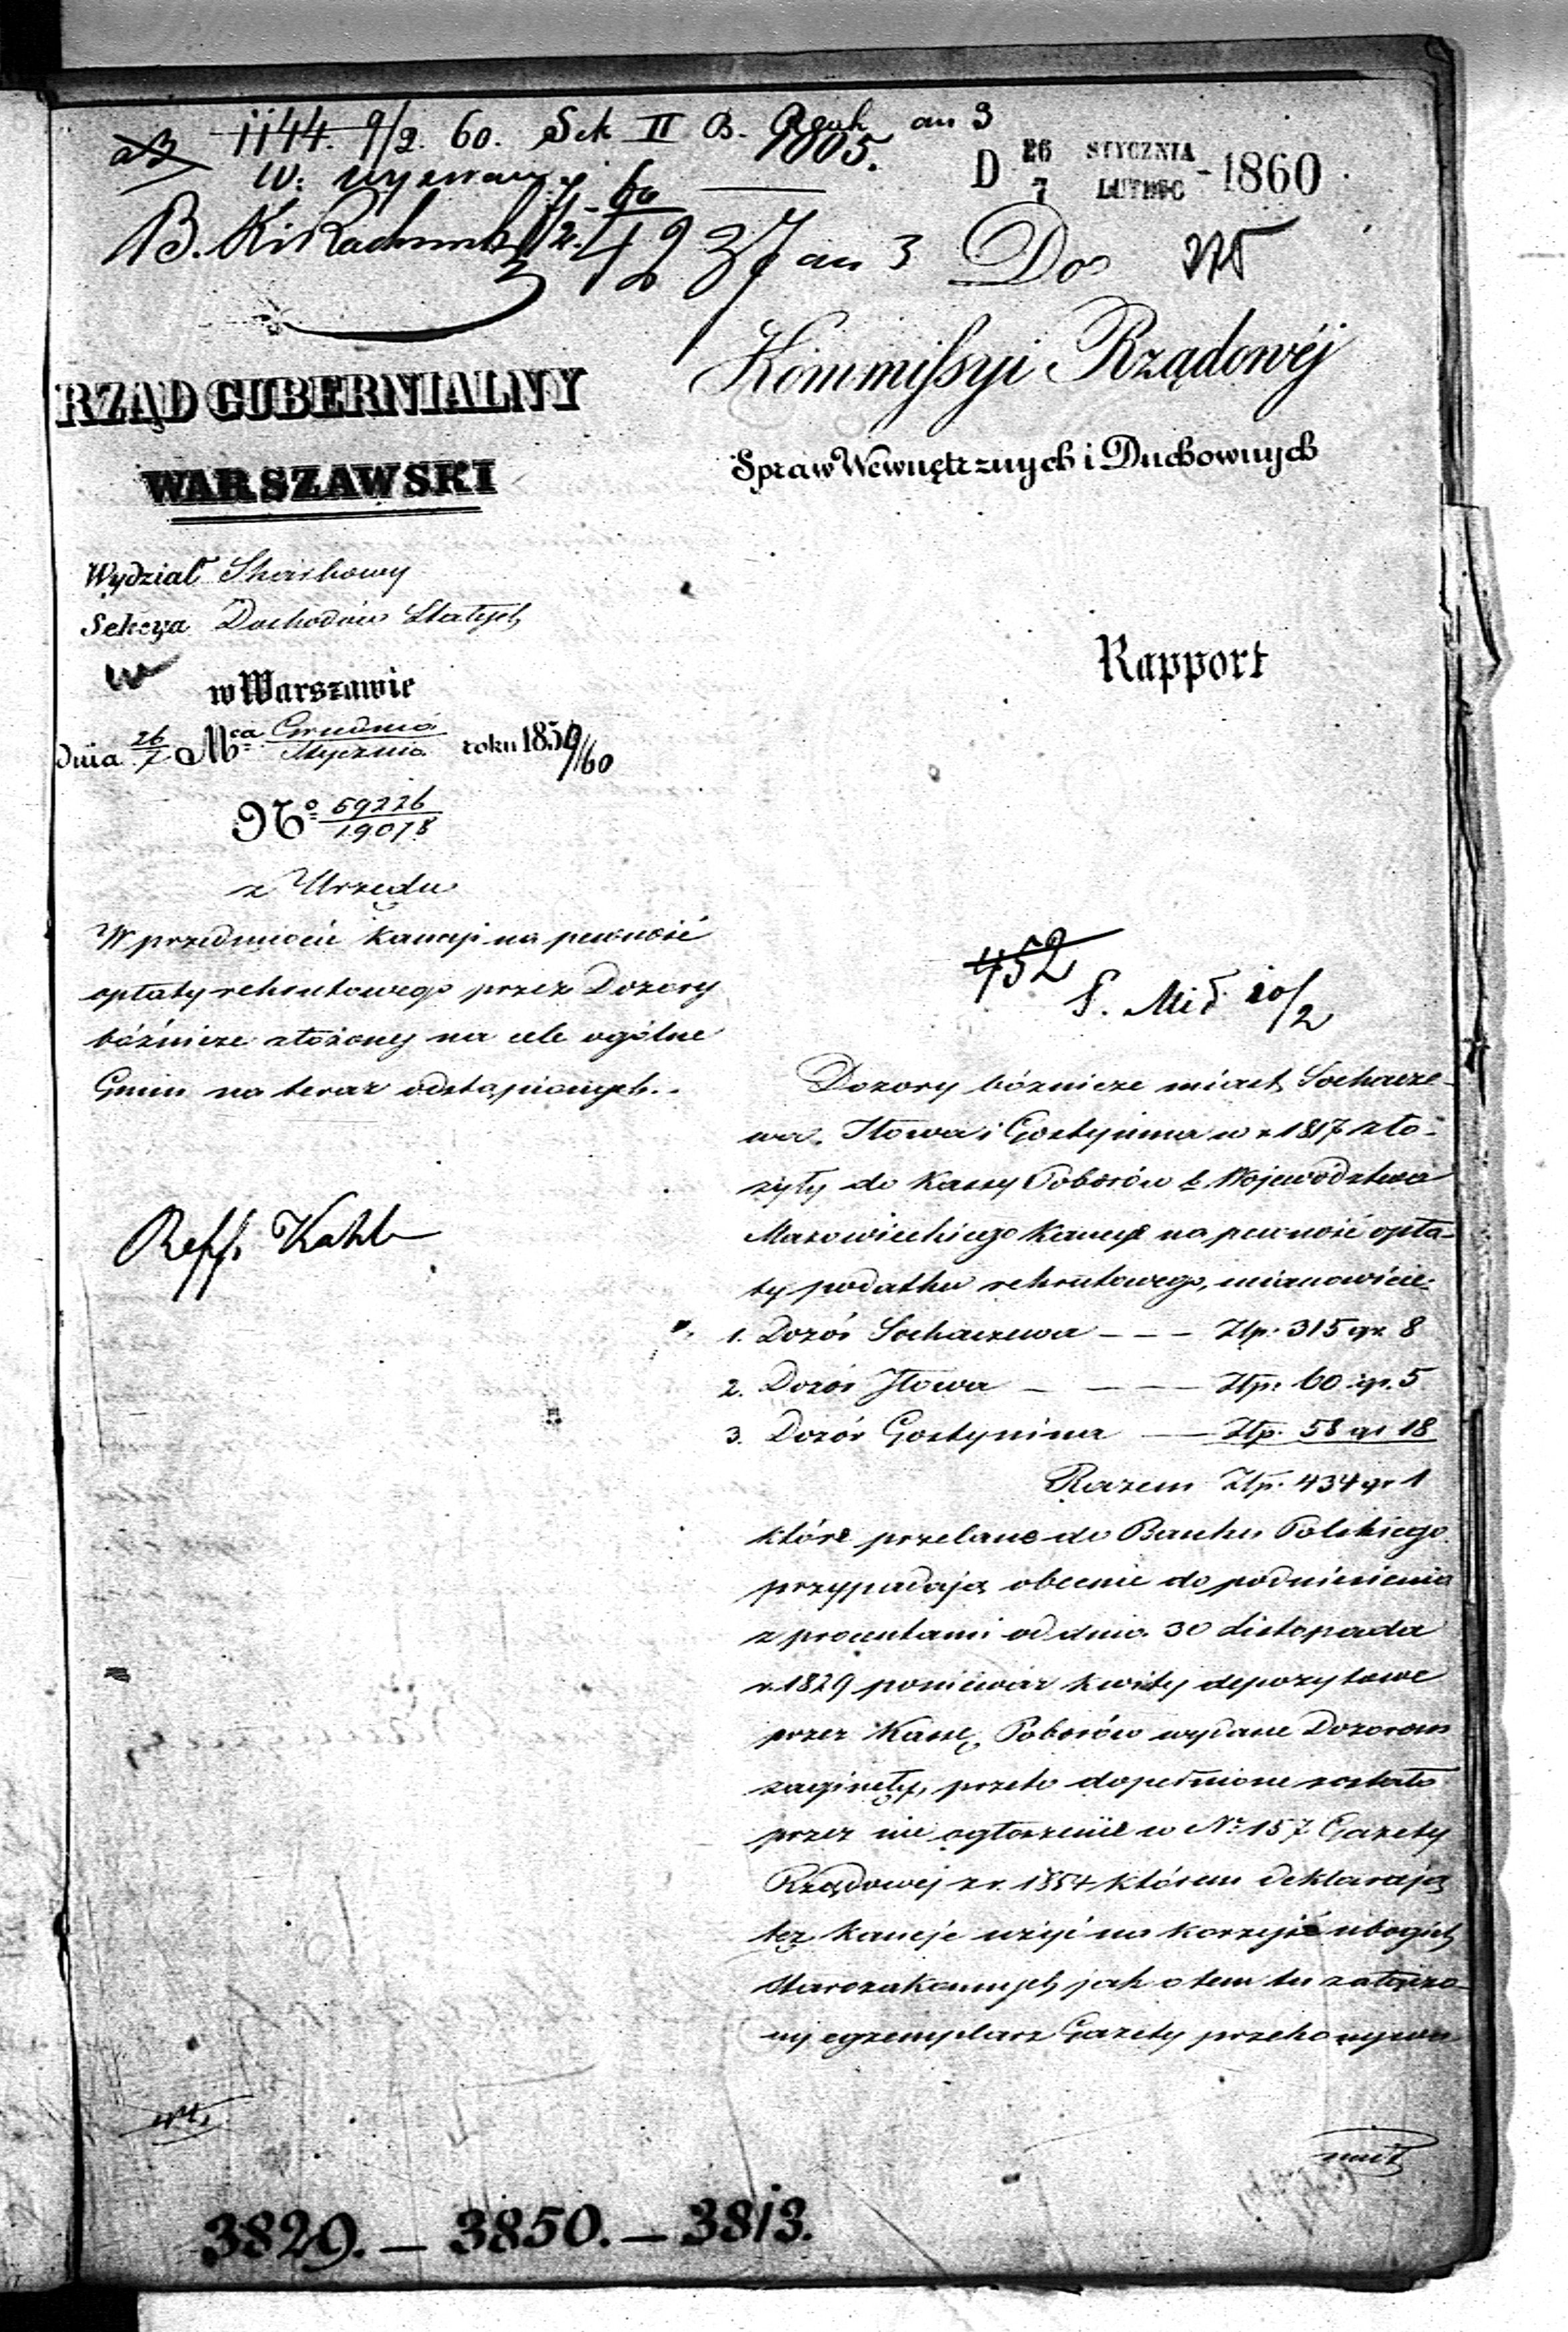 1144. 9/2. 60. Sek II B. an 3
1805.
D 26 STYCZNIA
7 LUTEGO -1860
B.
4237 an 3
Do
Kommissyi Rządowéj
Spraw Wewnętrznych i Duchownych
RZĄD GUBERNIALNY
WARSZAWSKI
Wydział Skarbowy
Sekcya Dochodów Stałych
w Warszawie
Dnia 26/7 Mca Grudnia/Stycznia roku 1859/60
No 59226/19078
z Urzędu
W przedmiocie kaucji na pewność
opłaty rekrutowego przez Dozory
bóżnicze złożonej na cele ogólne
Gmin na teraz odstąpionych.
Reff. Kohl
Rapport
452
10/2
Dozory bóżnicze miast Sochacze-
wa, Iłowa i Gostynina w r 1817 zło-
żyły do Kassy Poborów b. Województwa
Mazowieckiego Kaucye na pewność opła-
ty podatku rekrutowego, mianowicie:
1. Dozór Sochaczewa - - - Złp. 315 gr. 8
2. Dozór Iłowa - - - - Złp. 60 gr. 5
3. Dozór Gostynina - - Złp. 58 gr 18
Razem Złp. 434 gr 1
które przelane do Banku Polskiego
przypadają obecnie do podniesienia
z procentami od dnia 30 Listopada
r. 1829 ponieważ kwity depozytowe
przez Kassę Poborów wydane Dozorom
zaginęły, przeto dopełnione zostało
przez nie ogłoszenie w No 157 Gazety
Rządowej z r. 1854 którem deklarają
tez kaucje użyć na korzyść ubogich
Starozakonnych jak o tem tu załączo-
ny egzemplarz Gazety przekonywa
3829. - 3850. - 3813.